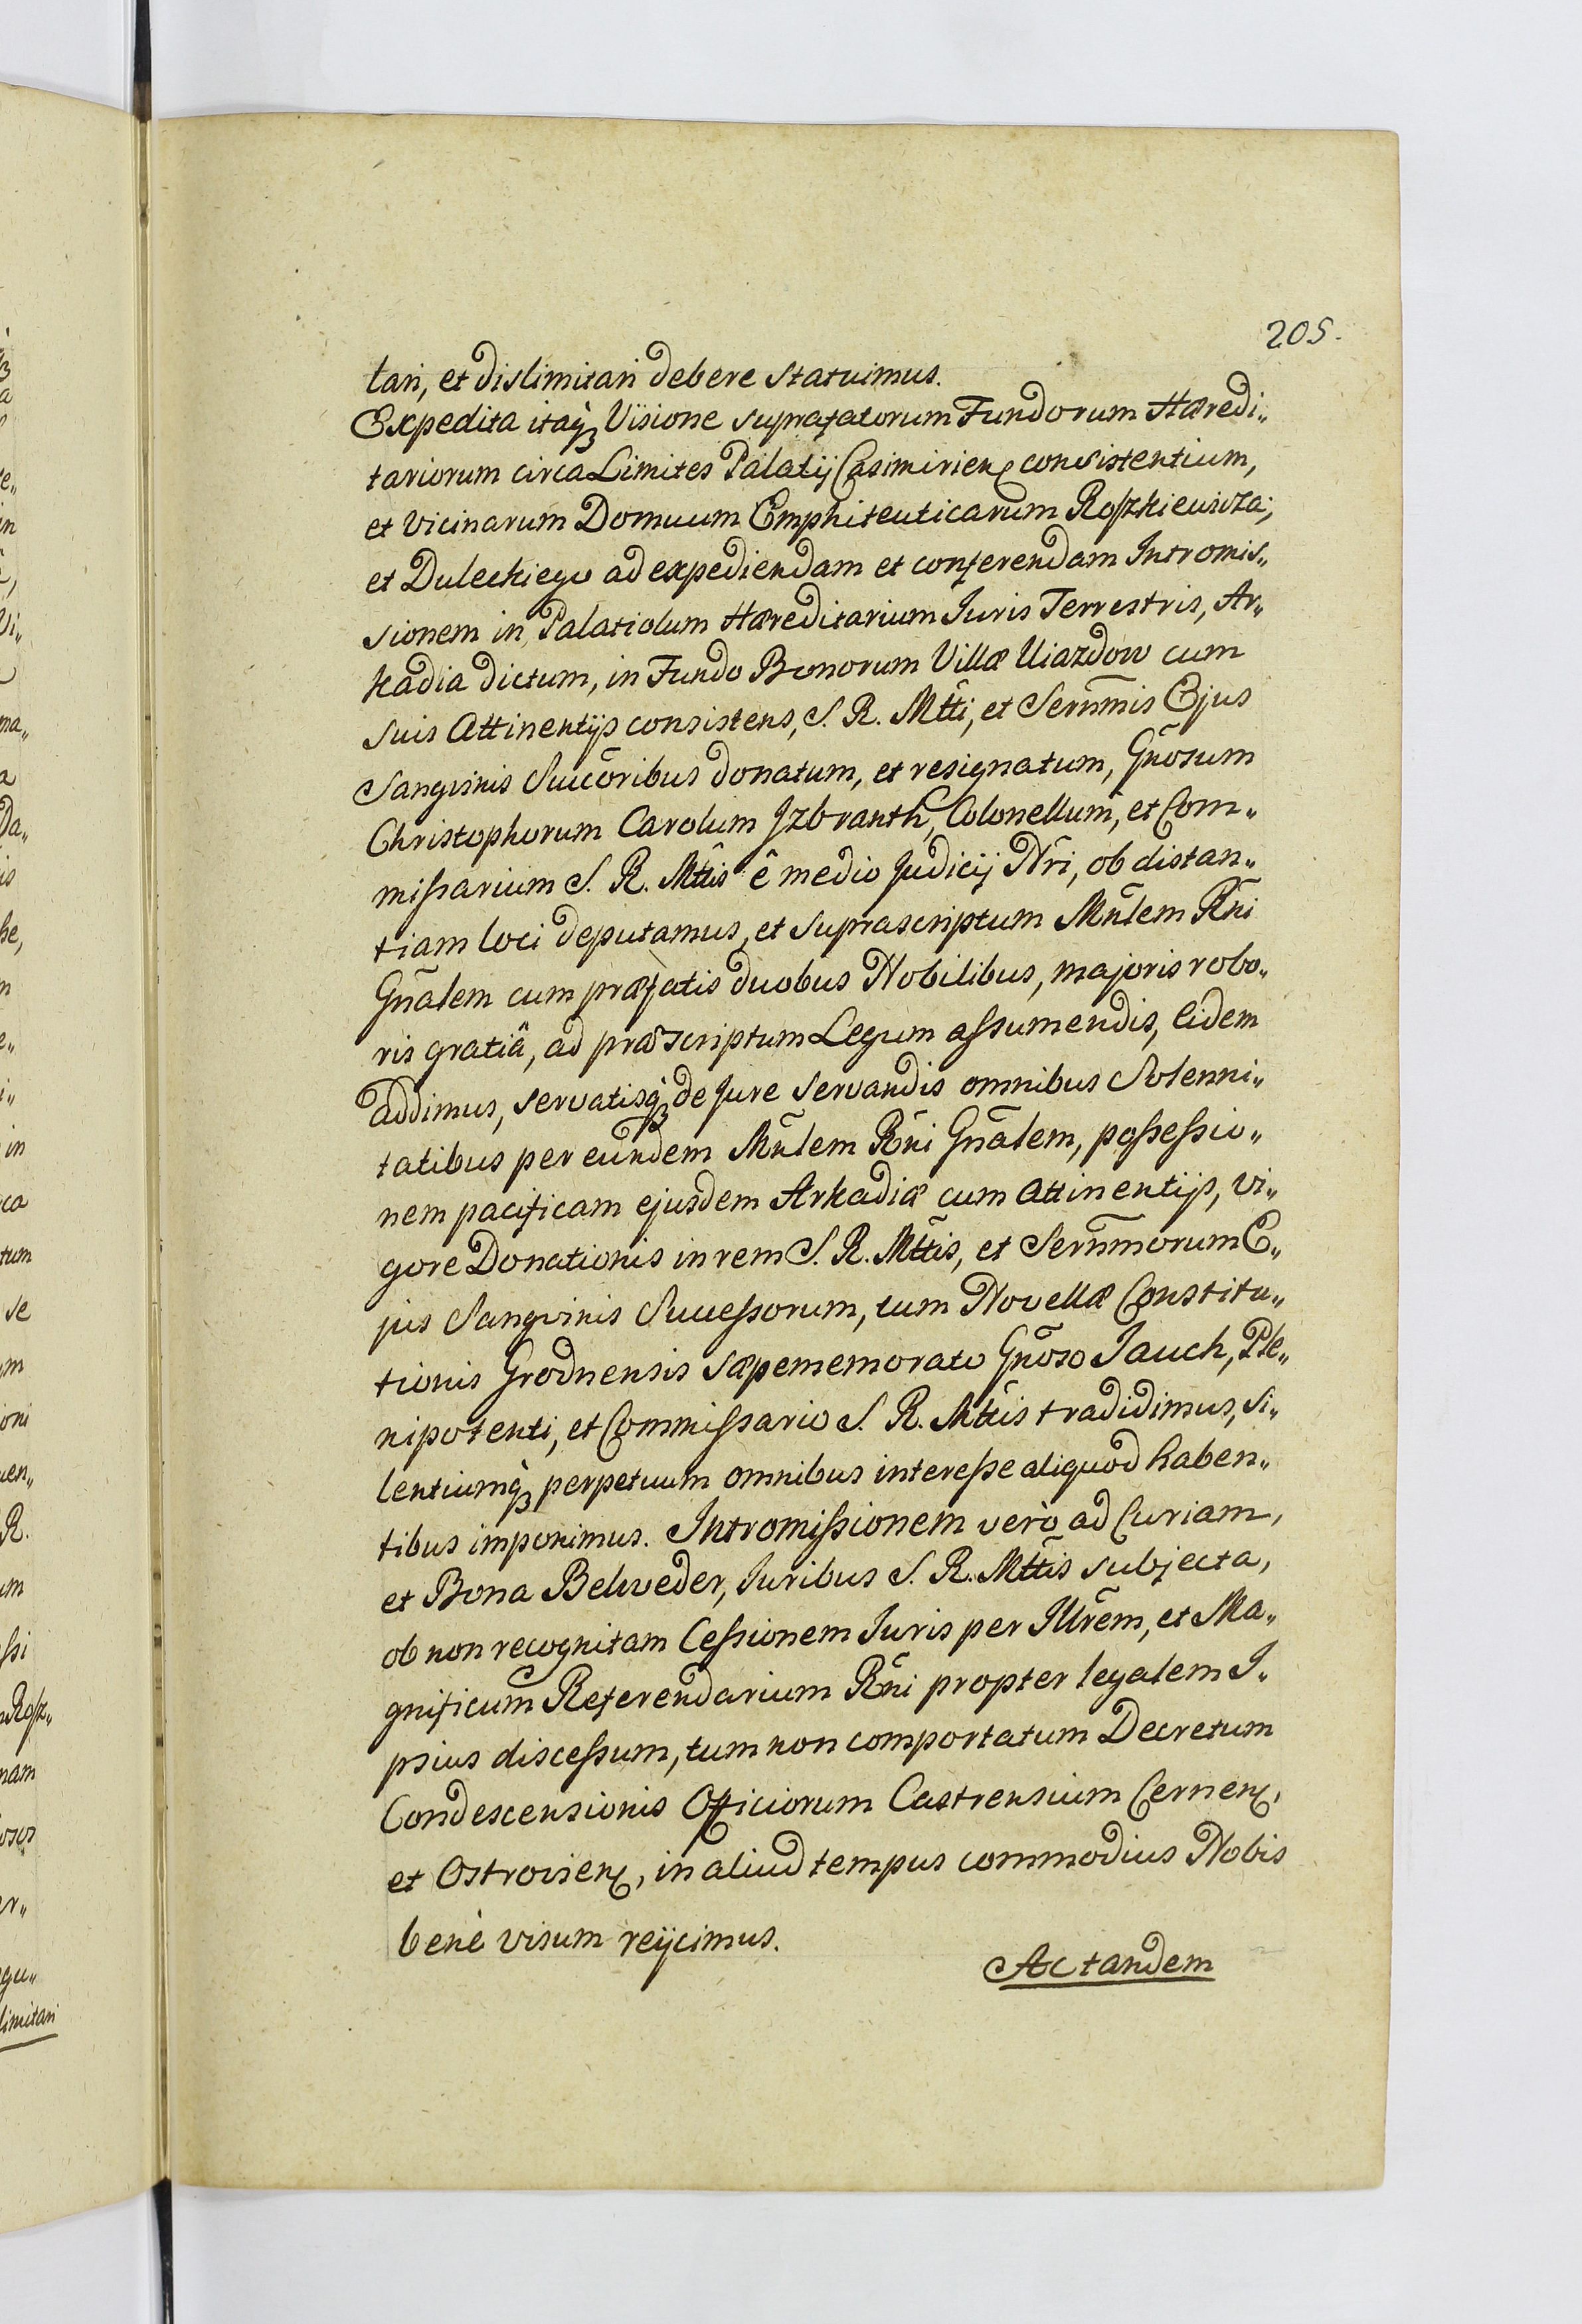 205.
tari, et dislimitari debere statuimus.
Expedita itaq́ꝫ Visione suprafatorum Fundorum Hæredi„
tariorum circa Limites Palatij Casimirien consistentium,
et vicinarum Domuum Emphiteuticarum Roszkiewicza,
et Duleckiego ad expediendam et conferendam Intromis„
sionem in Palatiolum Hæreditarium Juris Terrestris, Ar„
kadia dictum, in Fundo Bonorum Villæ Uiazdow cum
suis Attinentijs consistens, S. R. Mtti, et Sernmis Ejus
Sangvinis Succoribus donatum, et resignatum, Gnosum
Christophorum Carolum Jzbranth, Colonellum, et Com„
missarium S. R. Mttis ê medio Judicij Nri, ob distan„
tiam loci deputamus, et suprascriptum Mnlem Rni
Gnalem cum præfatis duobus Nobilibus, majoris robo„
ris gratiâ, ad præscriptum Legum assumendis, Eidem
addimus, servatisq́ꝫ de Jure servandis omnibus Solenni„
tatibus per eundem Mnlem Rni Gnalem, possessio„
nem pacificam ejusdem Arkadiæ cum attinentijs, vi„
gore Donationis in rem S. R. Mttis, et Sernmorum E„
jus Sangvinis Successorum, tum Novellæ Constitu„
tionis Grodnensis sæpememorato Gnoso Jauch, Ple„
nipotenti, et Commissario S. R. Mttis tradidimus, si„
lentiumq́ꝫ perpetuum omnibus interesse aliquod haben„
tibus imponimus. Intromissionem verò ad Curiam,
et Bona Belweder, Juribus S. R. Mttis subjecta,
ob non recognitam Cessionem Juris per Jllrem, et Ma„
gnificum Referendarium Rni propter legalem I„
psius discessum, tum non comportatum Decretum
Condescensionis Officiorum Castrensium Cernen,
et Ostrovien, in aliud tempus commodius Nobis
benè visum reijcimus.
Ac tandem